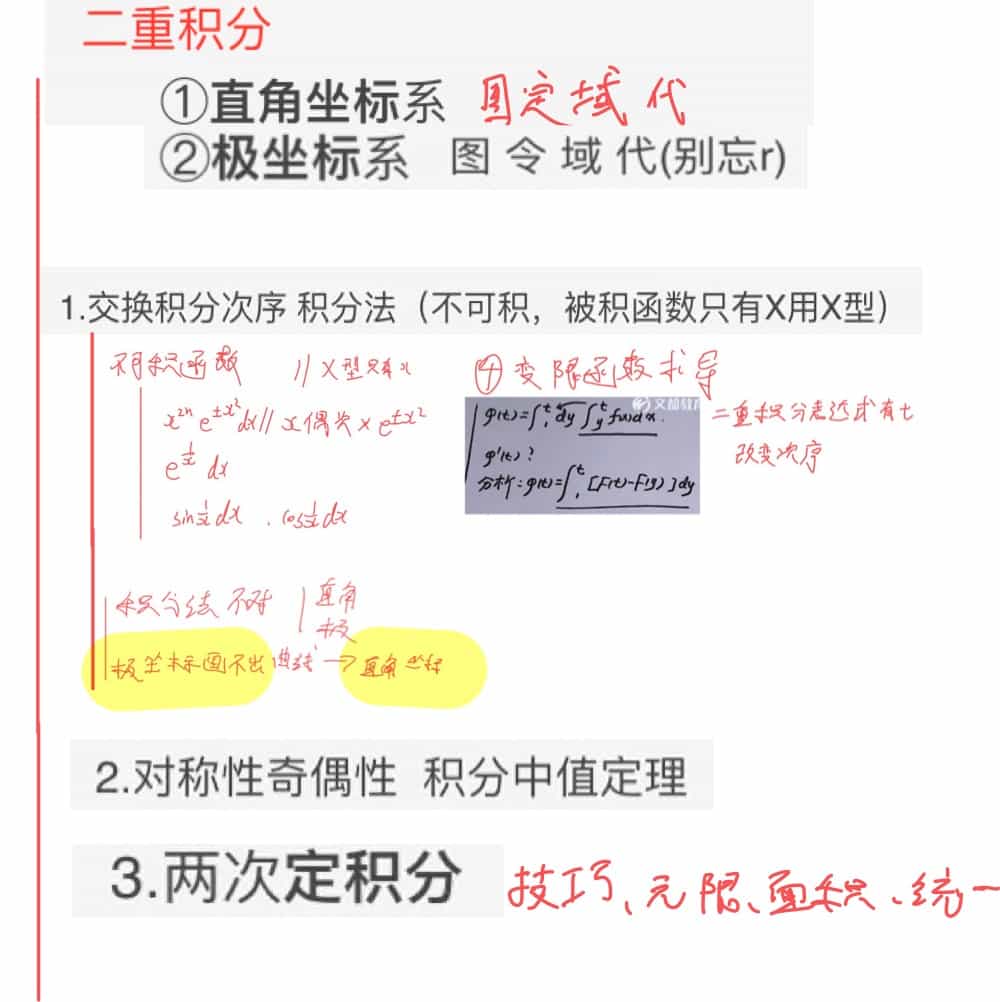 二重积分
①直角坐标系 图定域代
②极坐标系 图 令 域 代(别忘r)
1.交换积分次序 积分法（不可积，被积函数只有X用X型）
不可积函数 // X型只有x
x²ⁿ e^{±x²}dx // x偶次 × e^{±x²}
e^{1/x} dx
sin 1/x dx . cos 1/x dx
④变限函数求导
φ(t)=∫₁ᵗ dy ∫_yᵗ f(x)dx.
φ'(t)?
分析:φ(t)=∫₁ᵗ [F(t)-F(y)]dy
二重积分表达式有t
改变次序
积分法不对 直角
极
极坐标画不出曲线→直角坐标
2.对称性奇偶性 积分中值定理
3.两次定积分 技巧、元限、面积、统一